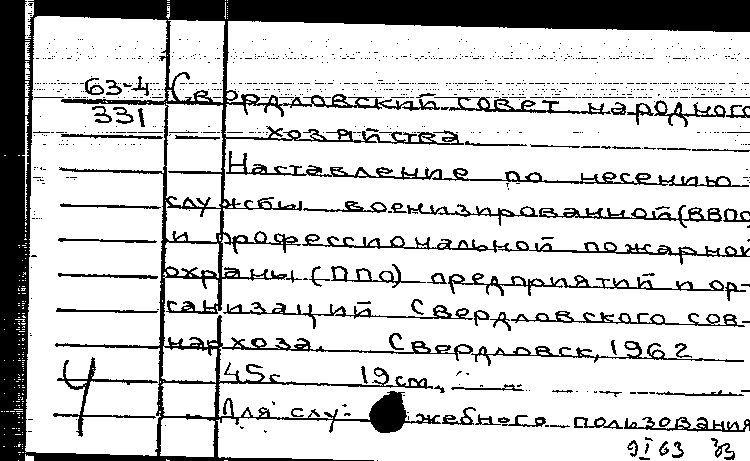 63-4
331
Свердловский совет народного
хозяйства.
Наставление по несению
службы военизированной (ВВПО
и профессиональной пожарной
охраны (ППО) предприятий и ор-
ганизаций Свердловского сов-
нархоза. Свердловск, 1962
45с. 19см.
Для слу- жебного пользования
4
9 I 63